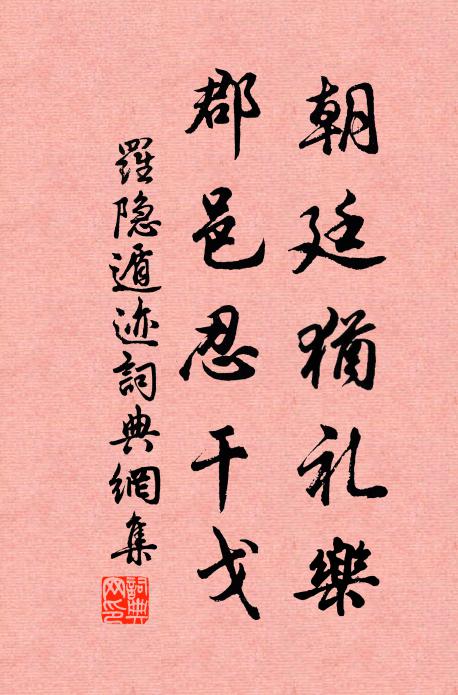 朝廷猶礼樂
郡邑忍干戈
羅隐遁迹詞典網集
詞典網印